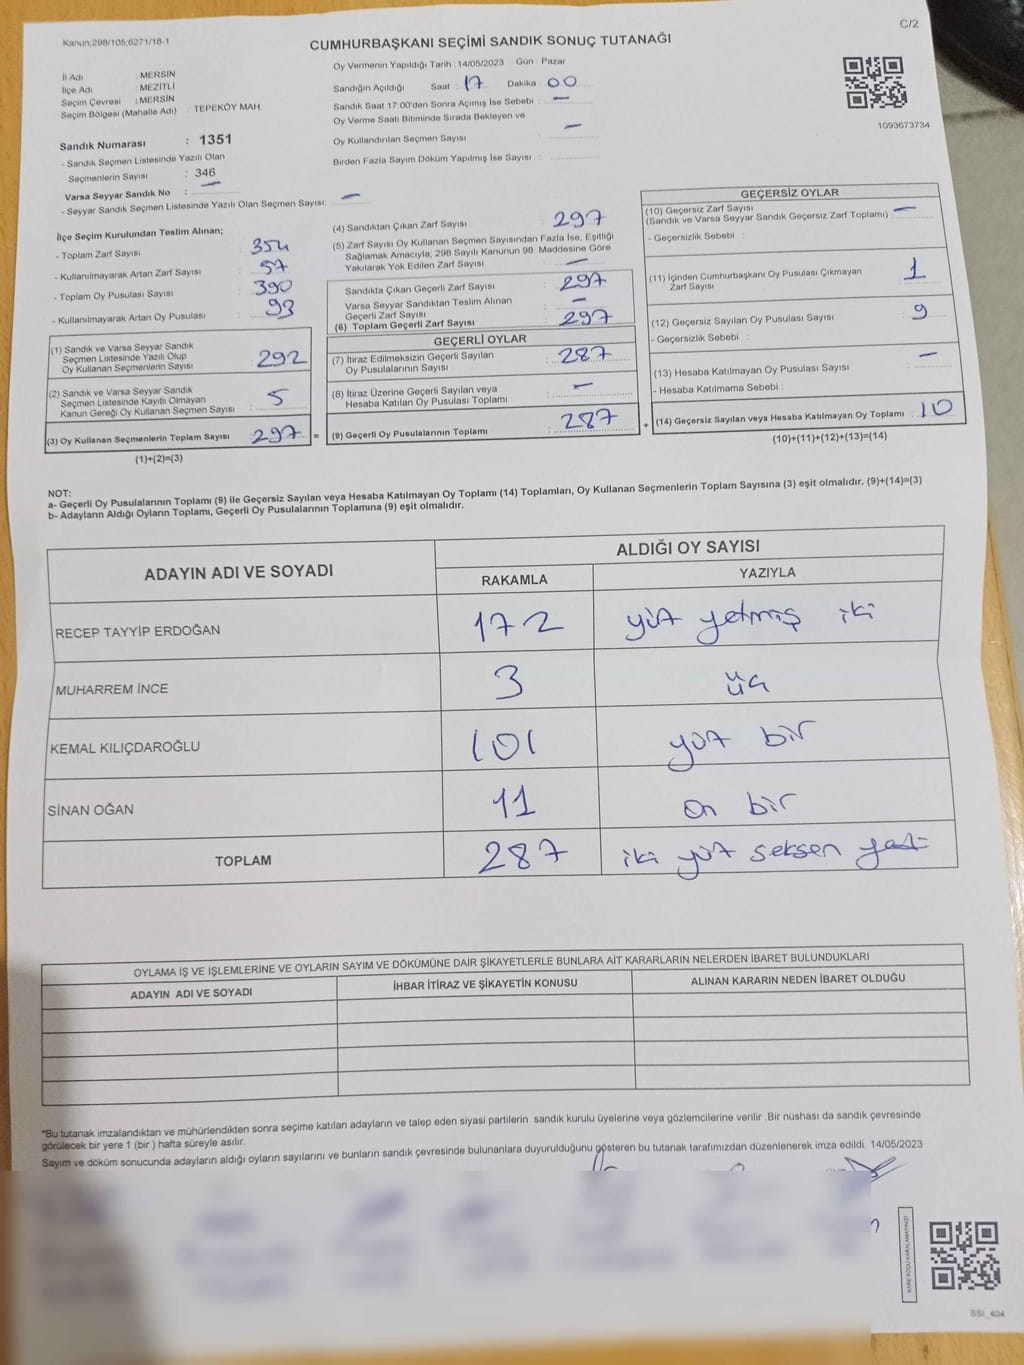 C/2
Kanun;298/105,6271/18-1
CUMHURBAŞKANI SEÇİMİ SANDIK SONUÇ TUTANAĞI
İl Adı : MERSİN
İlçe Adı : MEZİTLİ
Seçim Çevresi : MERSİN
Seçim Bölgesi (Mahalle Adı) : TEPEKÖY MAH.
Sandık Numarası : 1351
- Sandık Seçmen Listesinde Yazılı Olan
Seçmenlerin Sayısı : 346
Varsa Seyyar Sandık No : —
- Seyyar Sandık Seçmen Listesinde Yazılı Olan Seçmen Sayısı: —
Oy Vermenin Yapıldığı Tarih :14/05/2023 Gün : Pazar
Sandığın Açıldığı Saat : 17 Dakika : 00
Sandık Saat 17:00'den Sonra Açımış İse Sebebi : —
Oy Verme Saati Bitiminde Sırada Bekleyen ve
Oy Kullandırılan Seçmen Sayısı : —
Birden Fazla Sayım Döküm Yapılmış İse Sayısı :
1093673734
İlçe Seçim Kurulundan Teslim Alınan;
- Toplam Zarf Sayısı : 354
- Kullanılmayarak Artan Zarf Sayısı : 57
- Toplam Oy Pusulası Sayısı : 390
- Kullanılmayarak Artan Oy Pusulası : 93
(1) Sandık ve Varsa Seyyar Sandık
Seçmen Listesinde Yazılı Olup
Oy Kullanan Seçmenlerin Sayısı : 292
(2) Sandık ve Varsa Seyyar Sandık
Seçmen Listesinde Kayıtlı Olmayan
Kanun Gereği Oy Kullanan Seçmen Sayısı : 5
(3) Oy Kullanan Seçmenlerin Toplam Sayısı : 297 =
(1)+(2)=(3)
(4) Sandıktan Çıkan Zarf Sayısı : 297
(5) Zarf Sayısı Oy Kullanan Seçmen Sayısından Fazla İse, Eşitliği
Sağlamak Amacıyla, 298 Sayılı Kanunun 98. Maddesine Göre
Yakılarak Yok Edilen Zarf Sayısı : —
Sandıkta Çıkan Geçerli Zarf Sayısı : 297
Varsa Seyyar Sandıktan Teslim Alınan
Geçerli Zarf Sayısı : —
(6) Toplam Geçerli Zarf Sayısı : 297
GEÇERLİ OYLAR
(7) İtiraz Edilmeksizin Geçerli Sayılan
Oy Pusulalarının Sayısı : 287
(8) İtiraz Üzerine Geçerli Sayılan veya
Hesaba Katılan Oy Pusulası Toplamı : —
(9) Geçerli Oy Pusulalarının Toplamı : 287 +
GEÇERSİZ OYLAR
(10) Geçersiz Zarf Sayısı
(Sandık ve Varsa Seyyar Sandık Geçersiz Zarf Toplamı) : —
- Geçersizlik Sebebi :
(11) İçinden Cumhurbaşkanı Oy Pusulası Çıkmayan
Zarf Sayısı : 1
(12) Geçersiz Sayılan Oy Pusulası Sayısı : 9
- Geçersizlik Sebebi :
(13) Hesaba Katılmayan Oy Pusulası Sayısı : —
- Hesaba Katılmama Sebebi :
(14) Geçersiz Sayılan veya Hesaba Katılmayan Oy Toplamı : 10
(10)+(11)+(12)+(13)=(14)
NOT:
a- Geçerli Oy Pusulalarının Toplamı (9) ile Geçersiz Sayılan veya Hesaba Katılmayan Oy Toplamı (14) Toplamları, Oy Kullanan Seçmenlerin Toplam Sayısına (3) eşit olmalıdır. (9)+(14)=(3)
b- Adayların Aldığı Oyların Toplamı, Geçerli Oy Pusulalarının Toplamına (9) eşit olmalıdır.
ADAYIN ADI VE SOYADI ALDIĞI OY SAYISI
RAKAMLA YAZIYLA
RECEP TAYYİP ERDOĞAN 172 yüz yetmiş iki
MUHARREM İNCE 3 üç
KEMAL KILIÇDAROĞLU 101 yüz bir
SİNAN OĞAN 11 on bir
TOPLAM 287 iki yüz seksen yedi
OYLAMA İŞ VE İŞLEMLERİNE VE OYLARIN SAYIM VE DÖKÜMÜNE DAİR ŞİKAYETLERLE BUNLARA AİT KARARLARIN NELERDEN İBARET BULUNDUKLARI
ADAYIN ADI VE SOYADI İHBAR İTİRAZ VE ŞİKAYETİN KONUSU ALINAN KARARIN NEDEN İBARET OLDUĞU
*Bu tutanak imzalandıktan ve mühürlendikten sonra seçime katılan adayların ve talep eden siyasi partilerin sandık kurulu üyelerine veya gözlemcilerine verilir .Bir nüshası da sandık çevresinde
görülecek bir yere 1 (bir ) hafta süreyle asılır.
Sayım ve döküm sonucunda adayların aldığı oyların sayılarını ve bunların sandık çevresinde bulunanlara duyurulduğunu gösteren bu tutanak tarafımızdan düzenlenerek imza edildi. 14/05/2023
KARE KODU KARALAMAYINIZ!
SSI_404